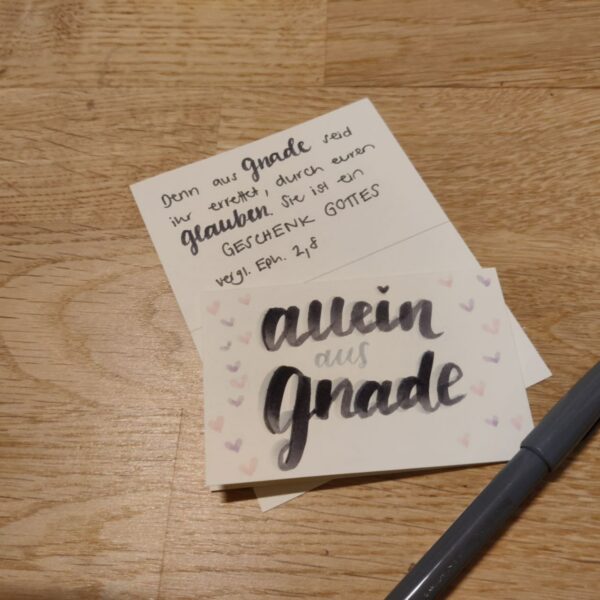 Denn aus gnade seid
ihr errettet, durch euren
glauben. Sie ist ein
GESCHENK GOTTES
vergl. Eph. 2,8
allein
aus
gnade